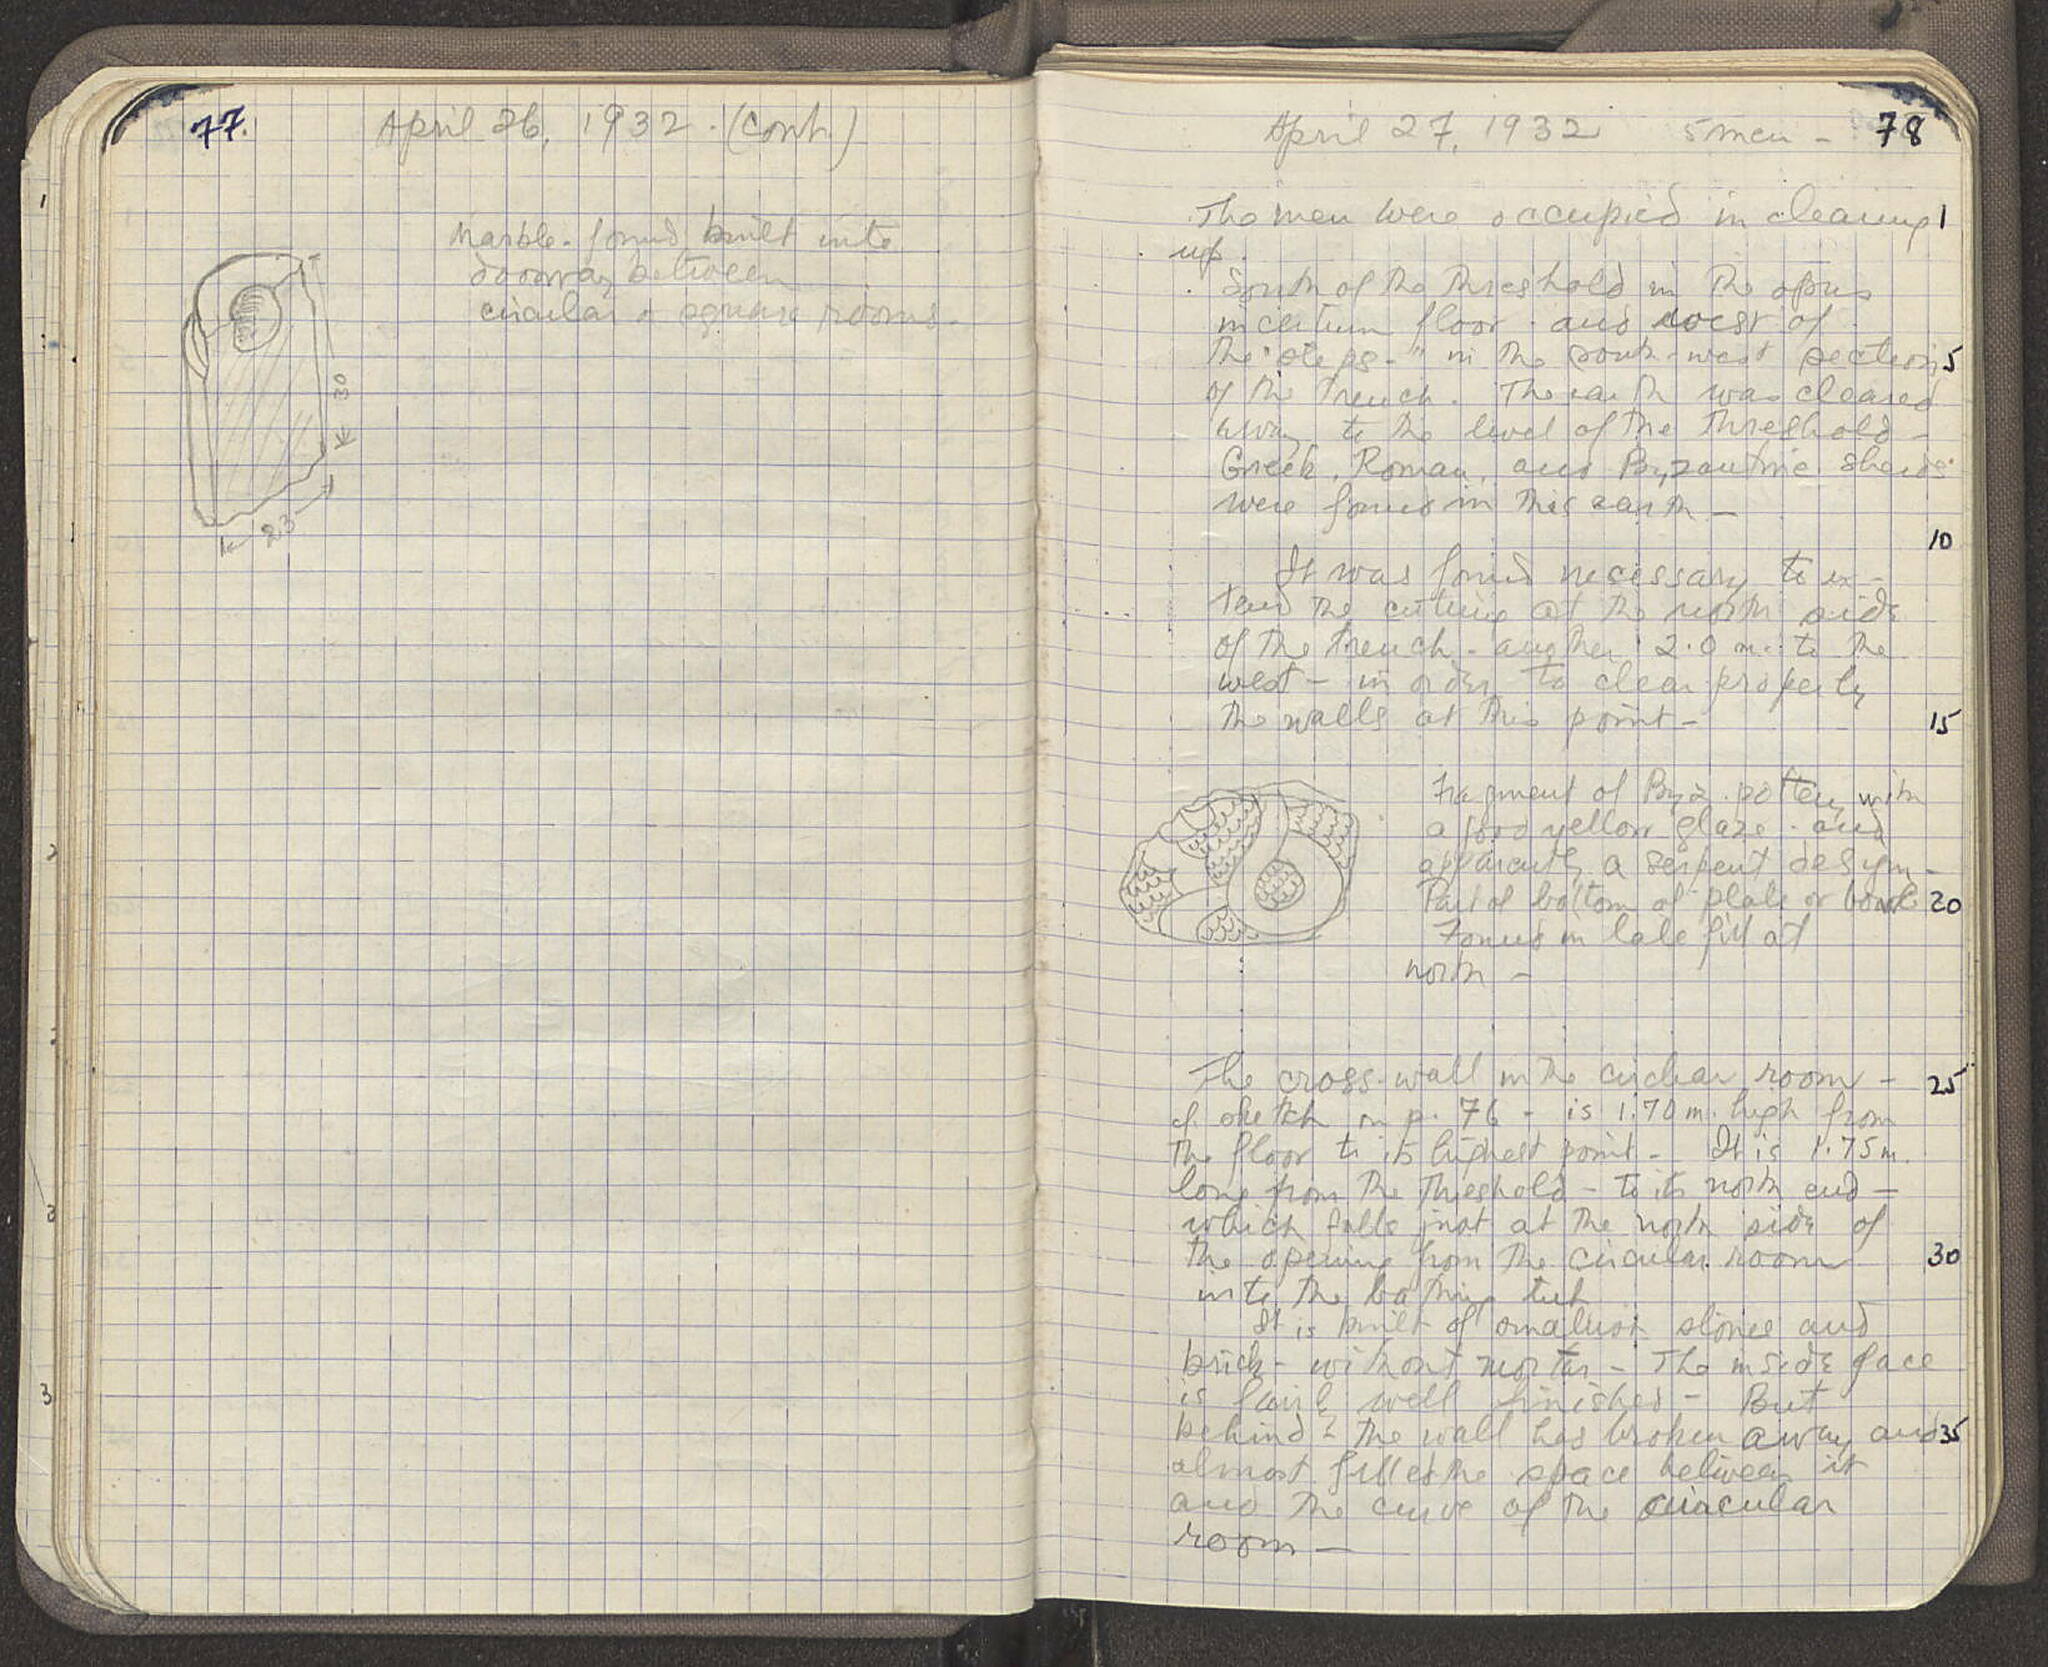 77.
April 26, 1932. (cont.)
Marble - found built into
doorway between
circular & square rooms -
30
23
April 27, 1932 5 men - 78
The men were occupied in cleaning 1
up.
South of the threshold in the opus
incertum floor - and west of
the "steps -" in the south-west section 5
of the trench. The earth was cleared
away to the level of the threshold -
Greek, Roman, and Byzantine sherds
were found in this earth -
10
It was found necessary to ex-
tend the cutting at the north side
of the trench - another 2.0 m. to the
west - in order to clear properly
the walls at this point - 15
Fragment of Byz. pottery with
a good yellow glaze - and
apparently a serpent design -
Part of bottom of plate or bowl 20
Found in late fill at
north -
The cross-wall in the circular room - 25
cf. sketch on p. 76 - is 1.70 m. high from
the floor to its highest point - It is 1.75 m.
long from the threshold - to its north end -
which falls just at the north side of
the opening from the circular room 30
into the bathing tub
It is built of smallish stones and
brick - without mortar - The inside face
is fairly well finished - But
behind the wall has broken away and 35
almost fills the space between it
and the curve of the circular
room -
1
2
3
3